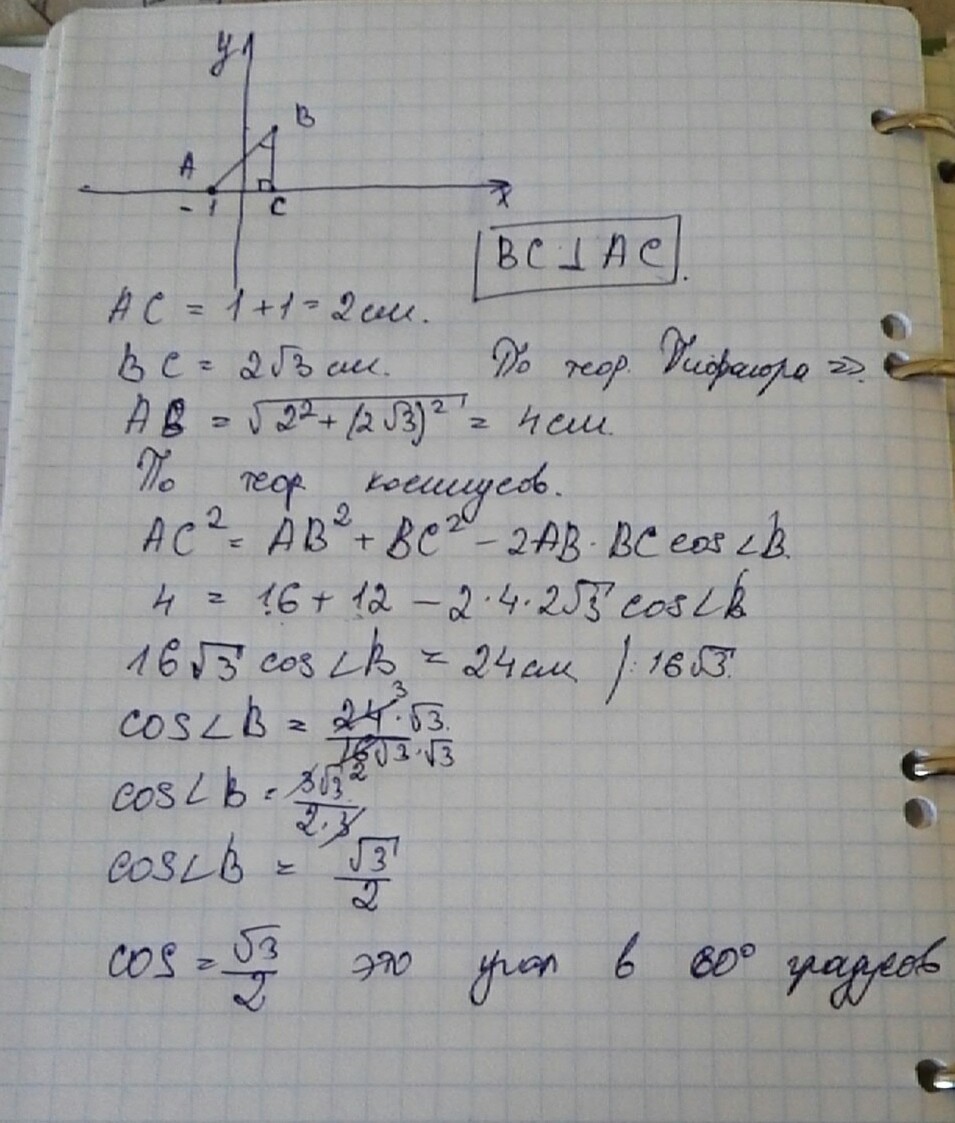 y
B
A
-1
C
x
BC ⊥ AC
AC = 1+1 = 2см.
BC = 2√3 см. По теор. Пифагора =>.
AB = √(2² + (2√3)²) = 4см.
По теор косинусов.
AC² = AB² + BC² - 2AB · BC cos∠B.
4 = 16 + 12 - 2·4·2√3 cos∠B
16√3 cos∠B = 24см /: 16√3.
cos∠B = 24 3 · √3 / 16 2 √3 · √3
cos∠B = 3√3 / 2·3
cos∠B = √3 / 2
cos = √3 / 2 это угол в 60° градусов